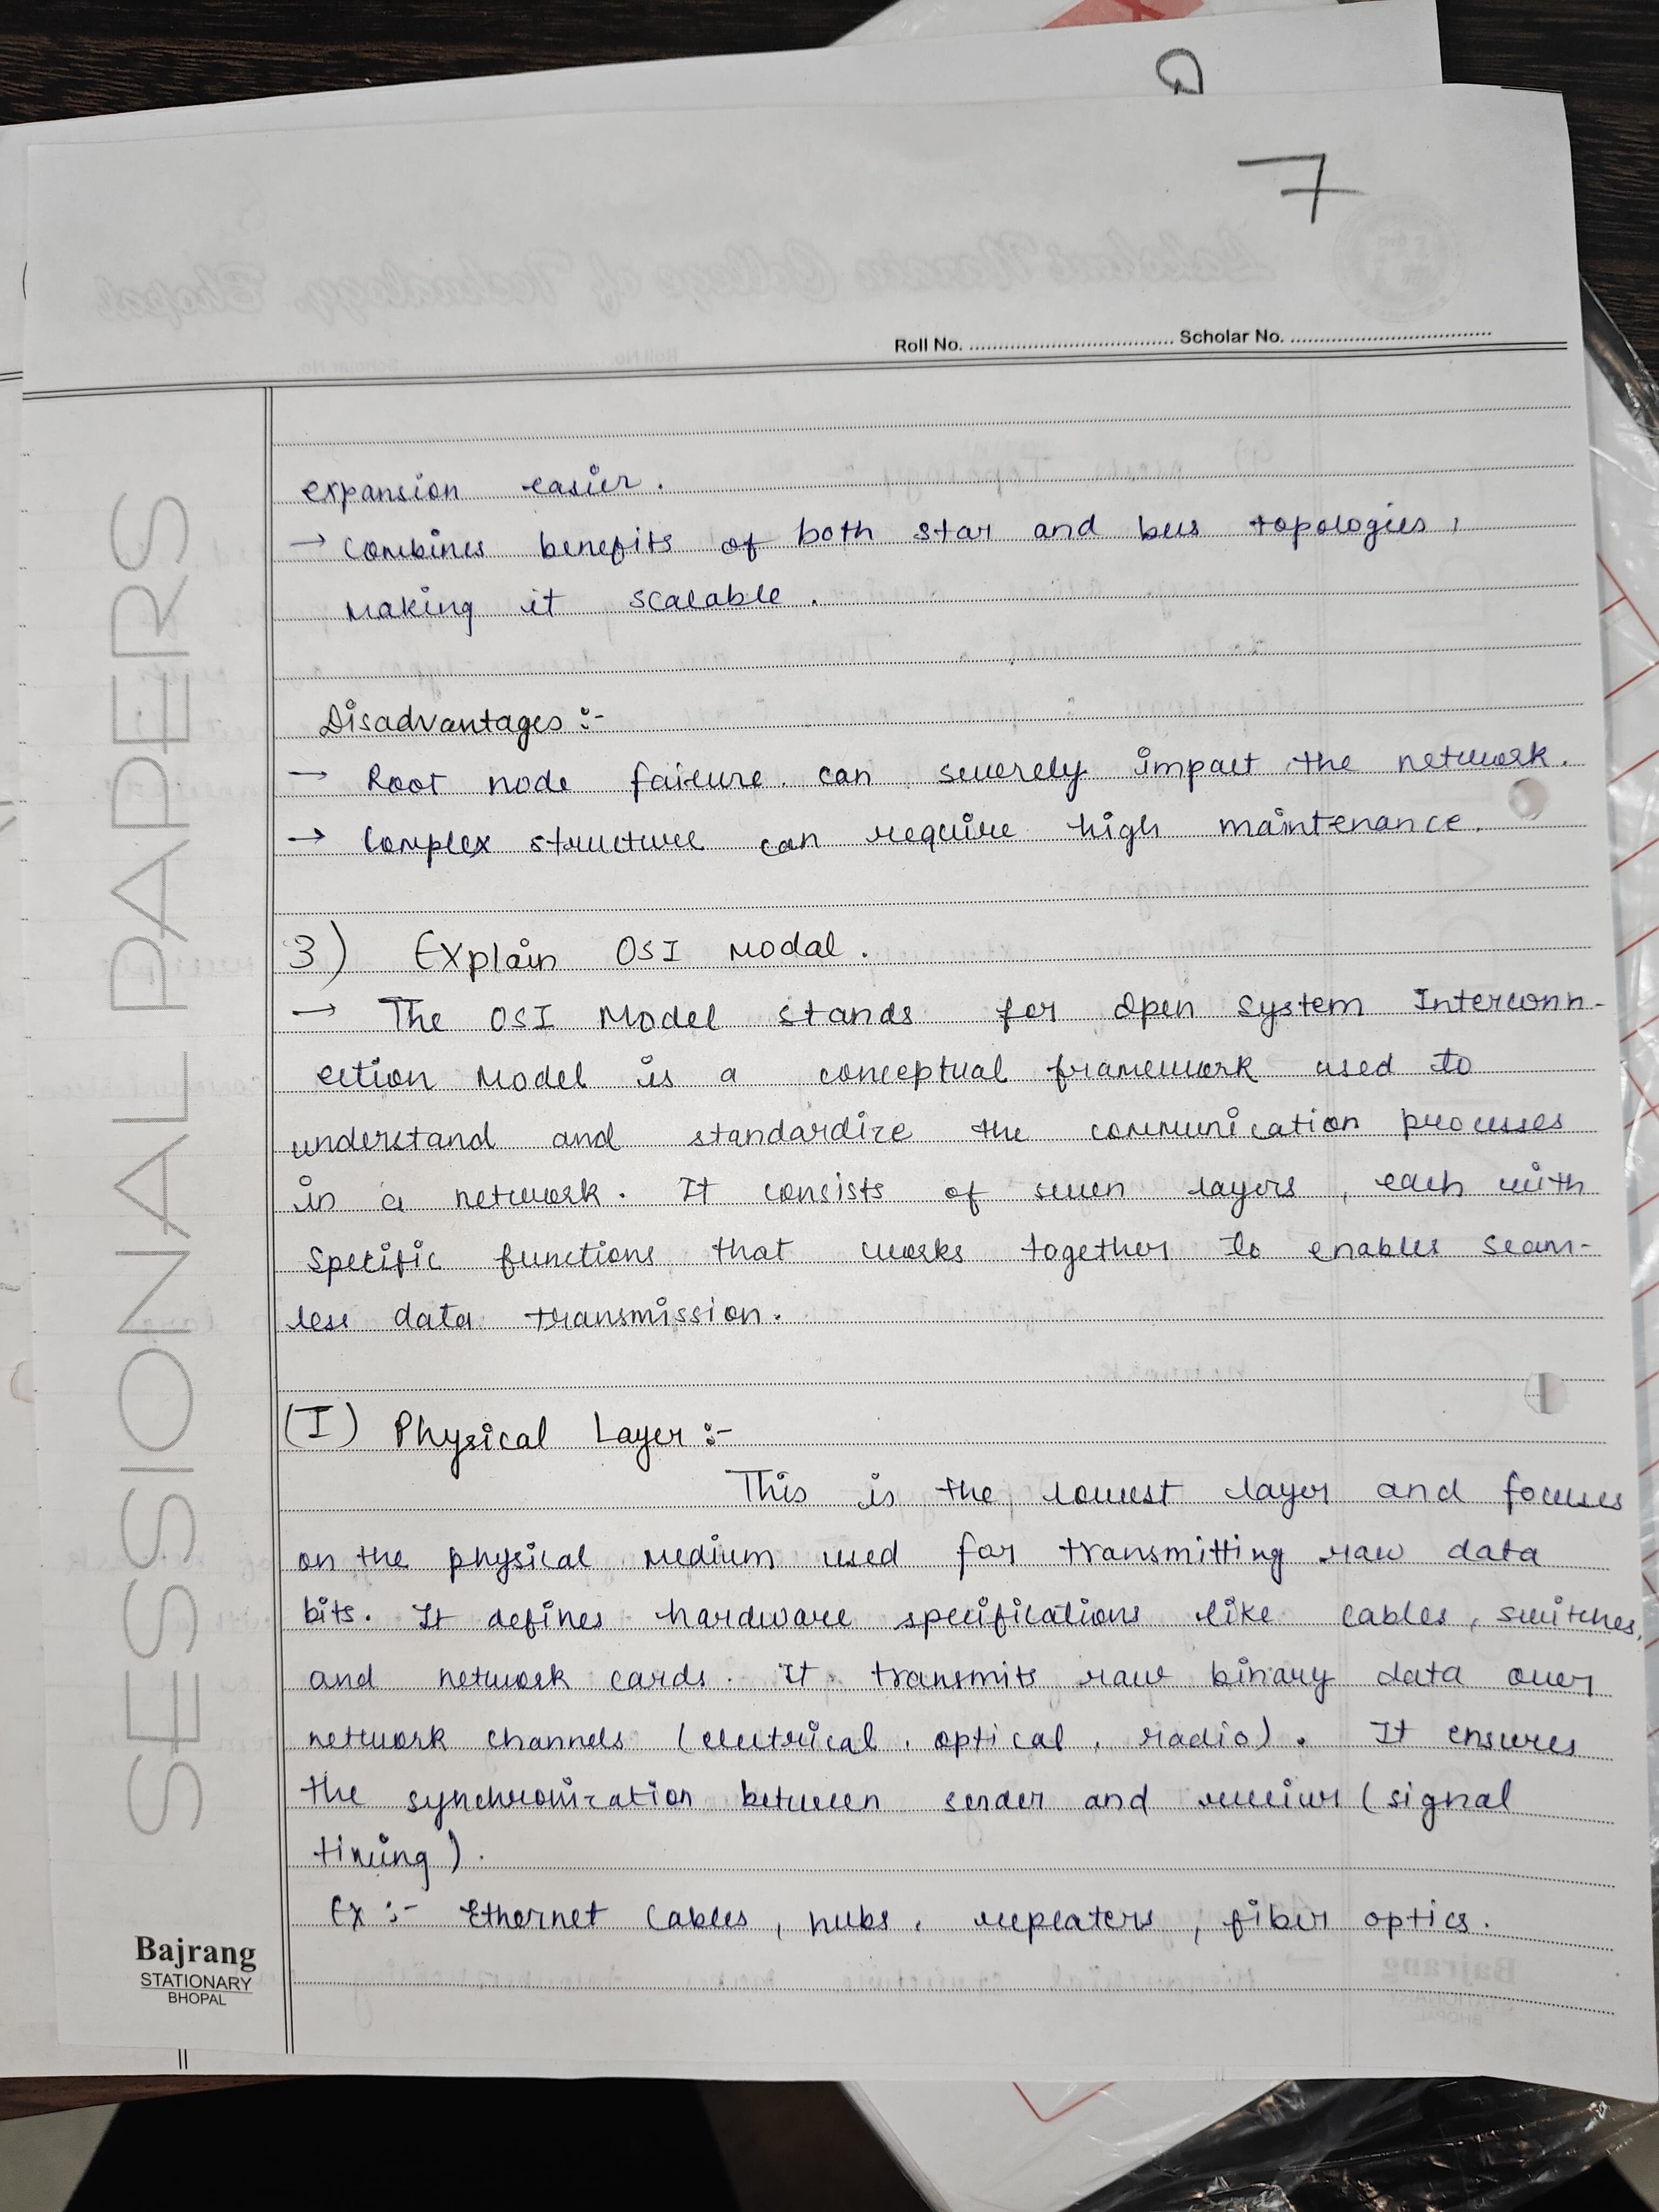 7
Roll No. .................................. Scholar No. ..................................
expansion easier.
→ Combines benefits of both star and bus topologies,
making it scalable.
Disadvantages :-
→ Root node failure can severely impact the network.
→ Complex structure can require high maintenance.
3) Explain OSI Modal.
→ The OSI Model stands for Open System Interconn-
ection Model is a conceptual framework used to
understand and standardize the communication processes
in a network. It consists of seven layers, each with
specific functions that works together to enables seam-
less data transmission.
(I) Physical Layer :-
This is the lowest layer and focuses
on the physical medium used for transmitting raw data
bits. It defines hardware specifications like cables, switches,
and network cards. It transmits raw binary data over
network channels (electrical, optical, radio). It ensures
the synchronization between sender and receiver (signal
timing).
Ex :- Ethernet Cables, hubs, repeaters, fiber optics.
SESSIONAL PAPERS
Bajrang
STATIONARY
BHOPAL